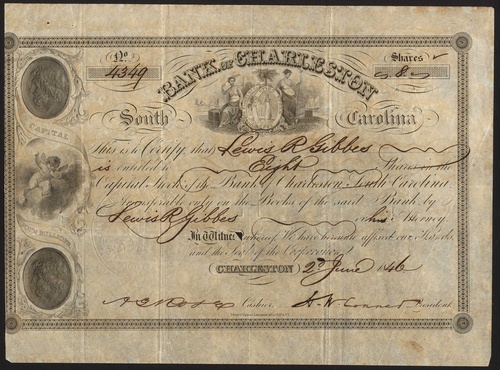 No. 4349
Shares 8
BANK OF CHARLESTON
South Carolina
CAPITAL
This is to Certify, that Lewis R Gibbes
is entitled to Eight Shares in the
Capital Stock of the Bank of Charleston South Carolina
transferable only on the Books of the said Bank by
Lewis R Gibbes or his Attorney.
In Witness whereof We have hereunto affixed our Names
and the Seal of the Corporation
CHARLESTON 2d June 1846
Cashier. President